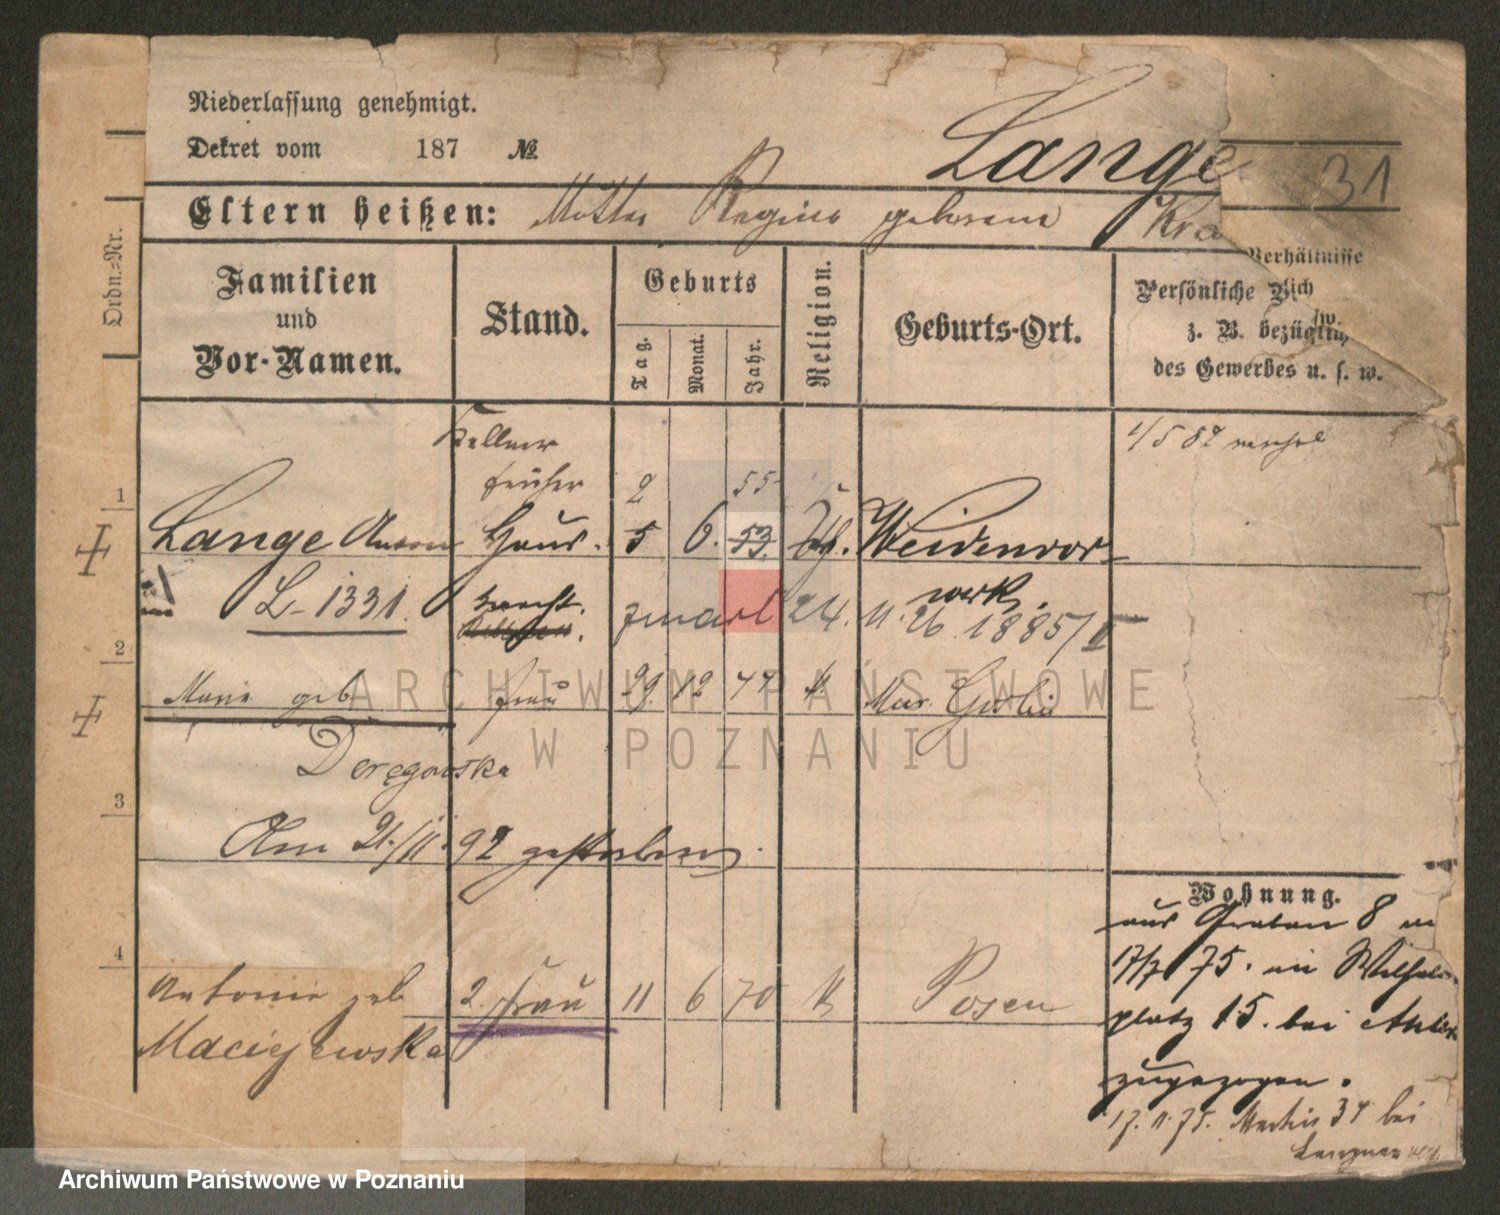 Niederlassung genehmigt.
Dekret vom 187 №
Lange
31
Eltern heißen: Mutter Regina geborene Kra
Ordn.-Nr.
Familien und Vor-Namen.
Stand.
Geburts
Tag. Monat. Jahr.
Religion.
Geburts-Ort.
Verhältnisse
Persönliche
z. B. bezüglich
des Gewerbes u. s. w.
Kellner
früher
2 55
1/5 87
1
Lange Anton Haus- 5 6. 53. Weidenvor-
L-1331 knecht. werk.
zmarł 24. 11. 26 1885/II
2
Marie geb Frau 29. 12 47 k.
Deręgowska
3
Am 21./11. 92 gestorben.
Wohnung.
aus Graben 8 
17/7 75. Wilhelms-
platz 15. bei
zugezogen.
4
Antonie geb 2. Frau 11 6 70 k Posen
Maciejewska
17. 11. 75. Martin 34 bei
ARCHIWUM PAŃSTWOWE
W POZNANIU
Archiwum Państwowe w Poznaniu